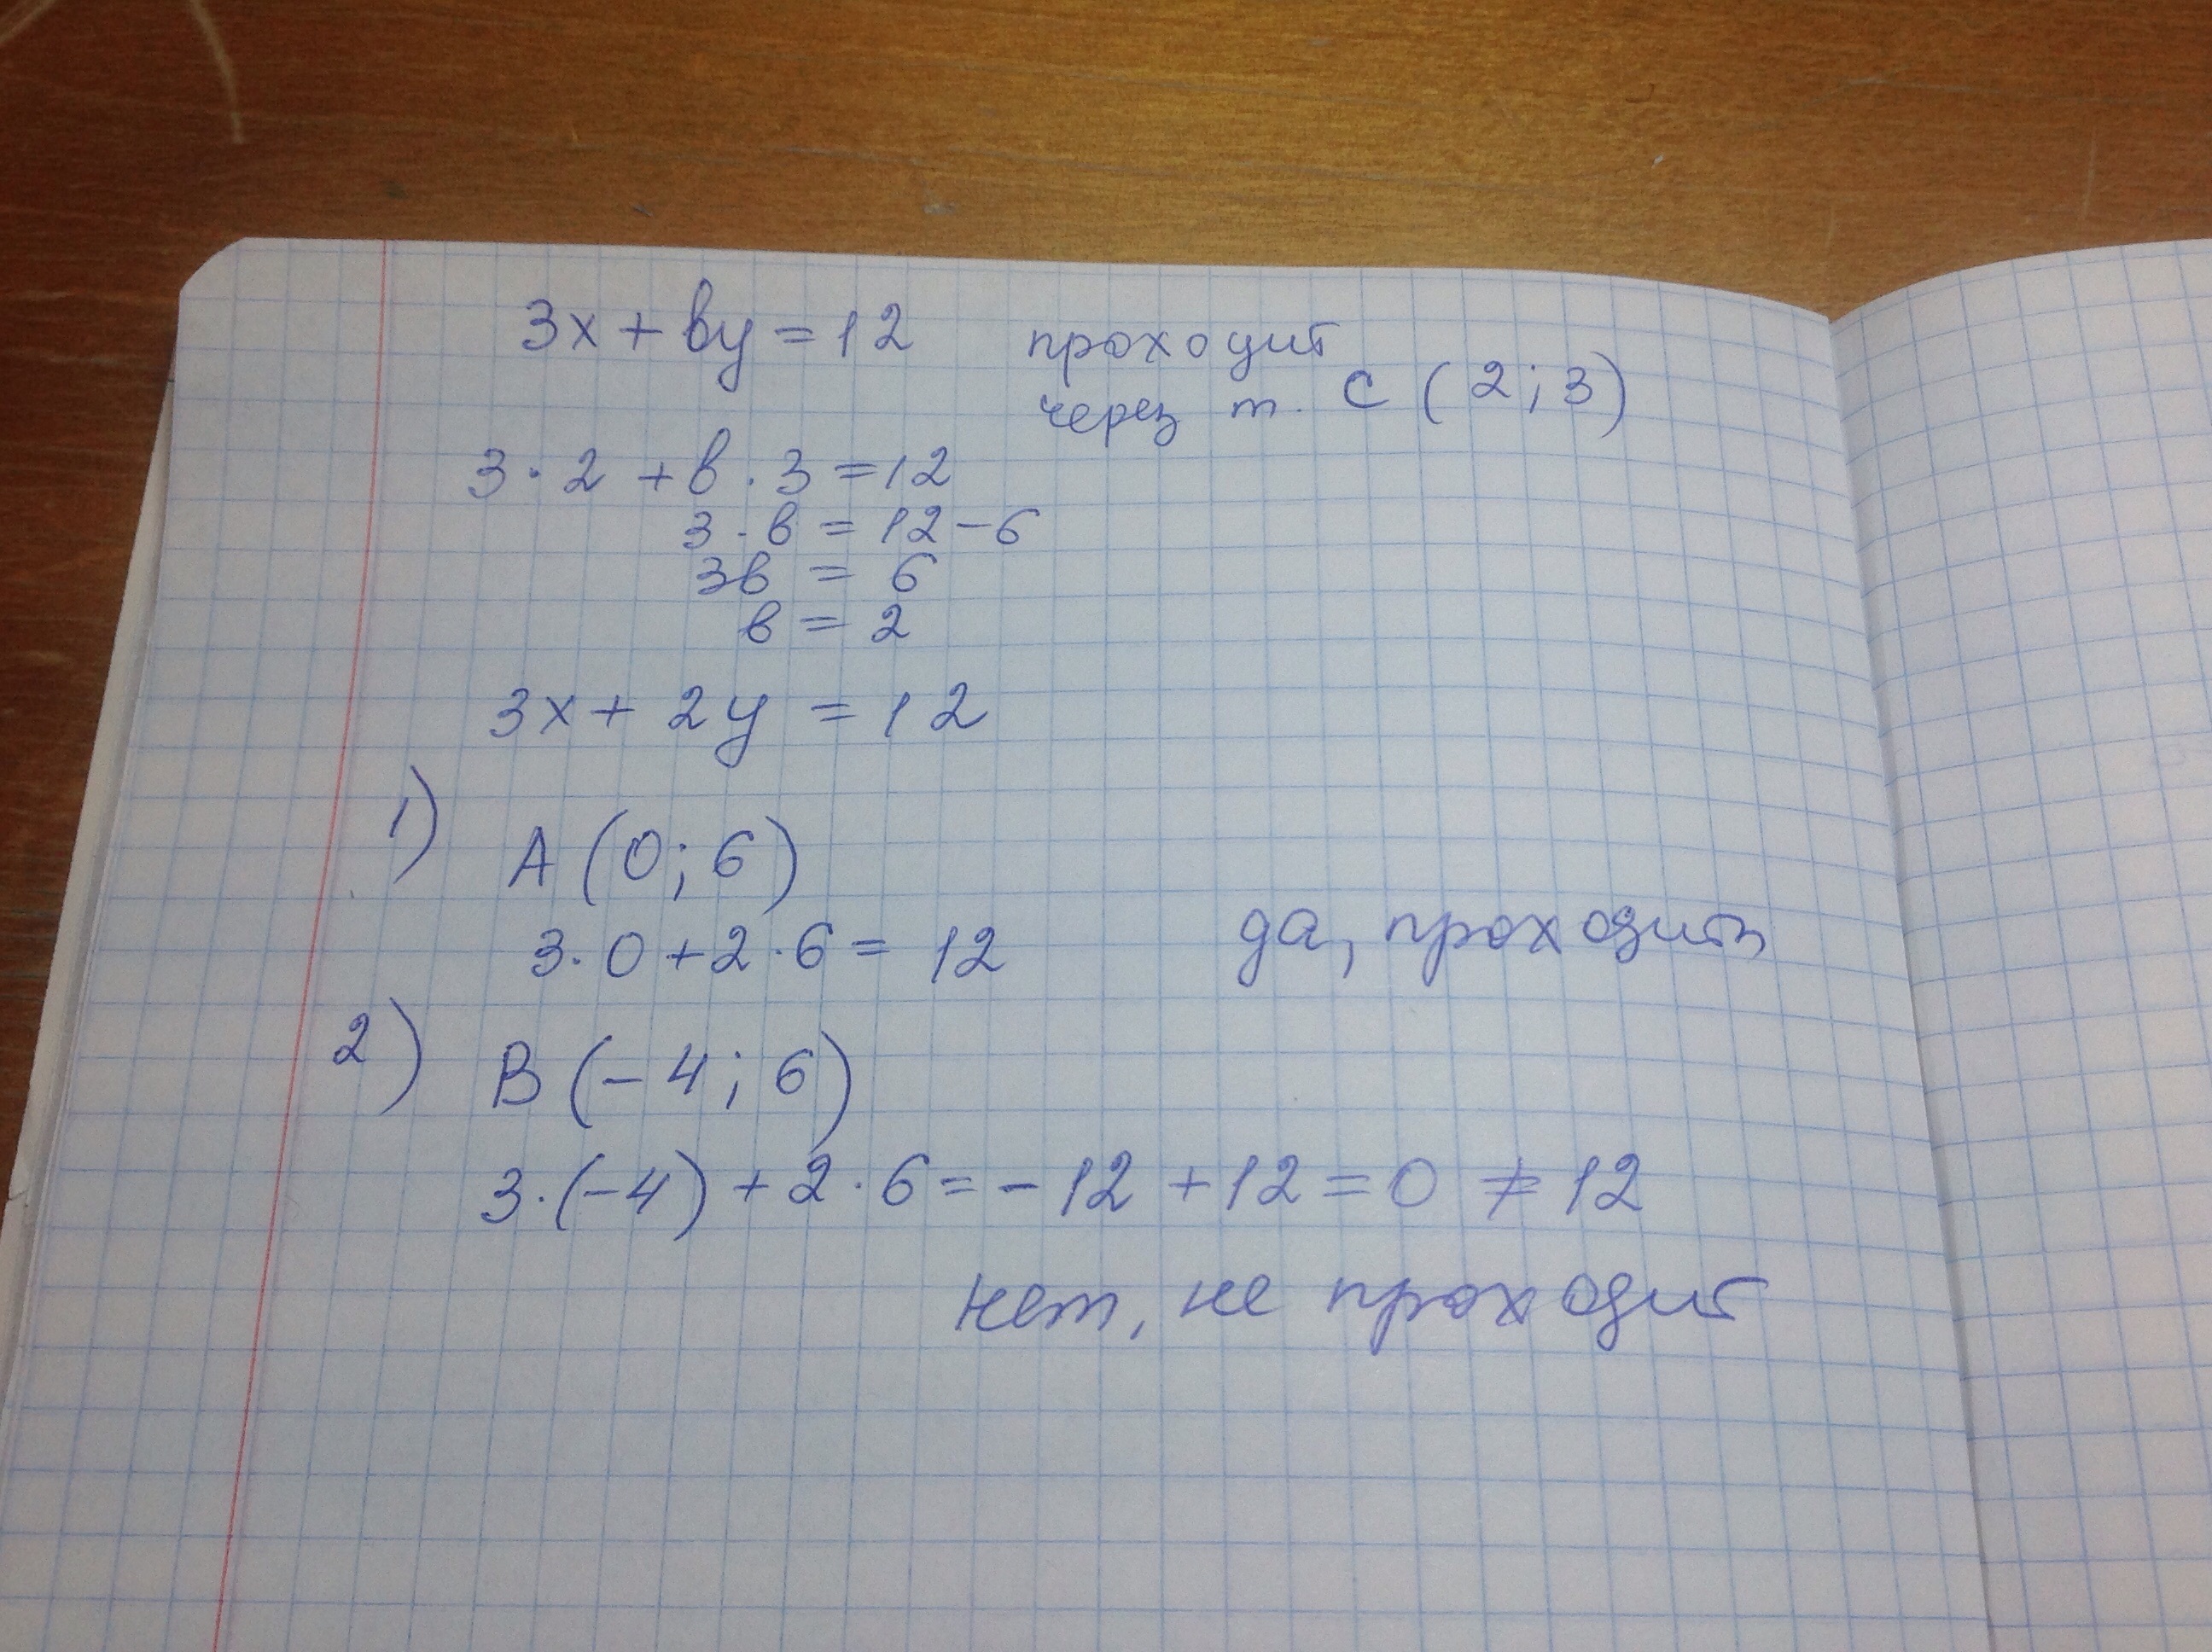 3x + by = 12 проходит
через т. C (2; 3)
3 · 2 + b · 3 = 12
3 · b = 12 - 6
3b = 6
b = 2
3x + 2y = 12
1) A (0; 6)
3 · 0 + 2 · 6 = 12 да, проходит
2) B (-4; 6)
3 · (-4) + 2 · 6 = -12 + 12 = 0 ≠ 12
нет, не проходит